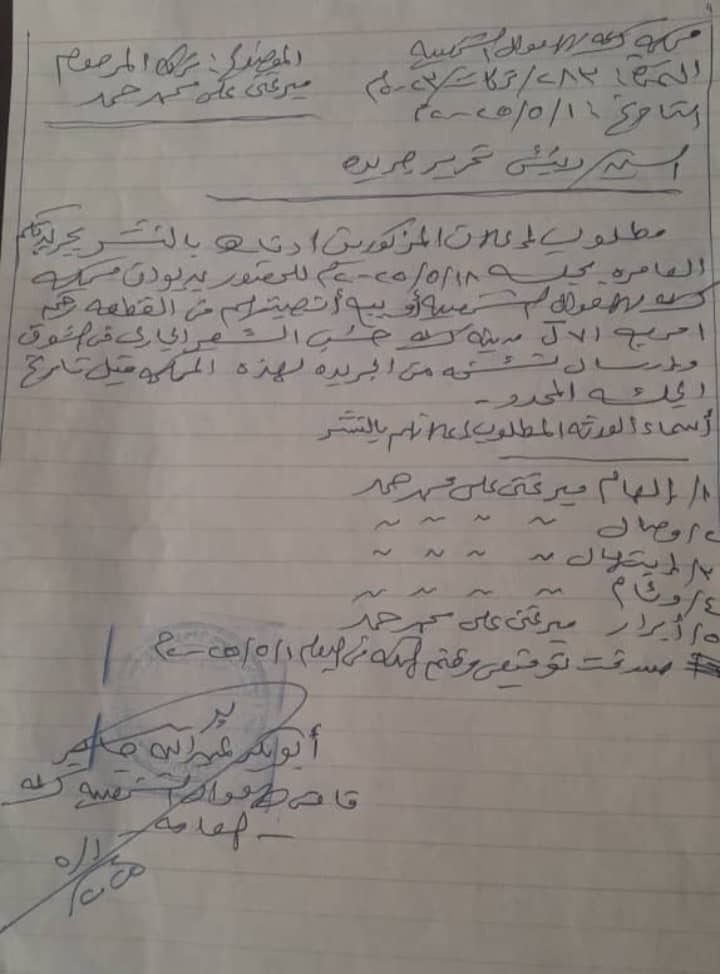 محكمة كسلا للأحوال الشخصية
النمرة: ٢٨٣/تركات/٢٠٢٣م
التاريخ: ٢٠٢٥/٥/١م
الموضوع: تركة المرحوم
ميرغني علي محمد حمد
السيد/ رئيس تحرير جريدة
مطلوب إعلان المذكورين أدناه بالنشر بجريدتكم
الغامرة بجلسة ٢٠٢٥/٥/١٨م للحضور بديوان محكمة
كسلا للأحوال الشخصية أو بيع أنصبتهم في القطعة رقم
مربع الأول مدينة كسلا حسب السعر الجاري في السوق
وإرسال نسخة من الجريدة لهذه المحكمة قبل تاريخ
الجلسة المحدد -
أسماء الورثة المطلوب إعلانهم بالنشر
١/ إلهام ميرغني علي محمد حمد
٢/ وصال ~ ~ ~ ~
٣/ إبتهال ~ ~ ~ ~
٤/ وئام ~ ~ ~ ~
٥/ أبرار ميرغني علي محمد حمد
صدر تحت توقيعي وختم المحكمة في اليوم ٢٠٢٥/٥/١م
أبوبكر عبدالله
قاضي الأحوال الشخصية كسلا
- العامة -
٥/١
٢٠٢٥